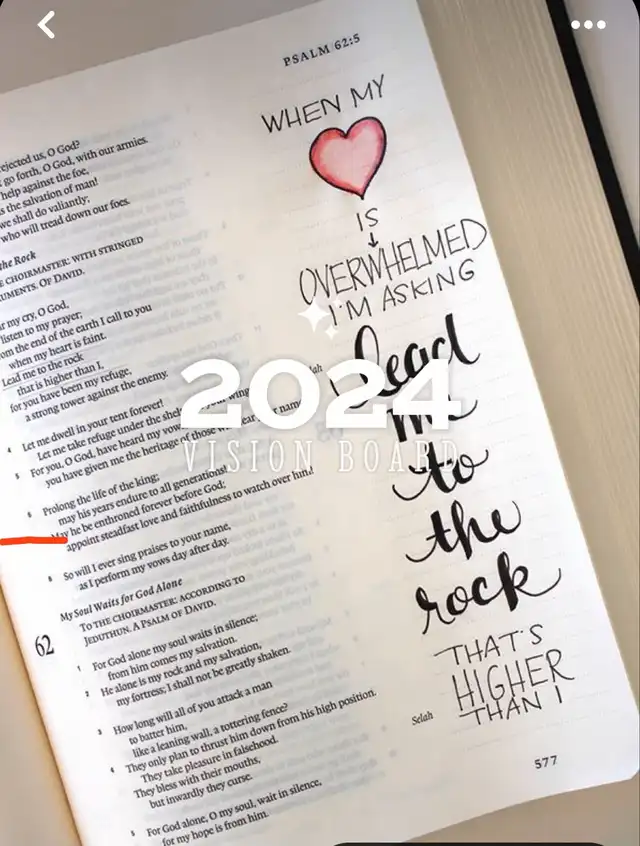 PSALM 62:5
rejected us, O God?
go forth, O God, with our armies.
help against the foe,
is the salvation of man!
we shall do valiantly;
who will tread down our foes.
the Rock
CHOIRMASTER: WITH STRINGED
OF DAVID.
my cry, O God,
listen to my prayer;
from the end of the earth I call to you
when my heart is faint.
Lead me to the rock
that is higher than I,
for you have been my refuge,
a strong tower against the enemy.
Selah
4 Let me dwell in your tent forever!
Let me take refuge under the your
5 For you, O God, have heard my vows
you have given me the heritage of those name.
6 Prolong the life of the king;
may his years endure to all generations!
May he be enthroned forever before God;
appoint steadfast love and faithfulness to watch over him!
8 So will I ever sing praises to your name,
as I perform my vows day after day.
My Soul Waits for God Alone
62
TO THE CHOIRMASTER: ACCORDING TO
JEDUTHUN. A PSALM OF DAVID.
1 For God alone my soul waits in silence;
from him comes my salvation.
2 He alone is my rock and my salvation,
my fortress; I shall not be greatly shaken.
3 How long will all of you attack a man
to batter him,
like a leaning wall, a tottering fence?
4 They only plan to thrust him down from his high position.
They take pleasure in falsehood.
They bless with their mouths,
but inwardly they curse.
Selah
5 For God alone, O my soul, wait in silence,
for my hope is from him.
WHEN MY
IS
OVERWHELMED
I'M ASKING
Lead
me
to
the
rock
THAT'S
HIGHER
THAN I
577
2024
VISION BOARD